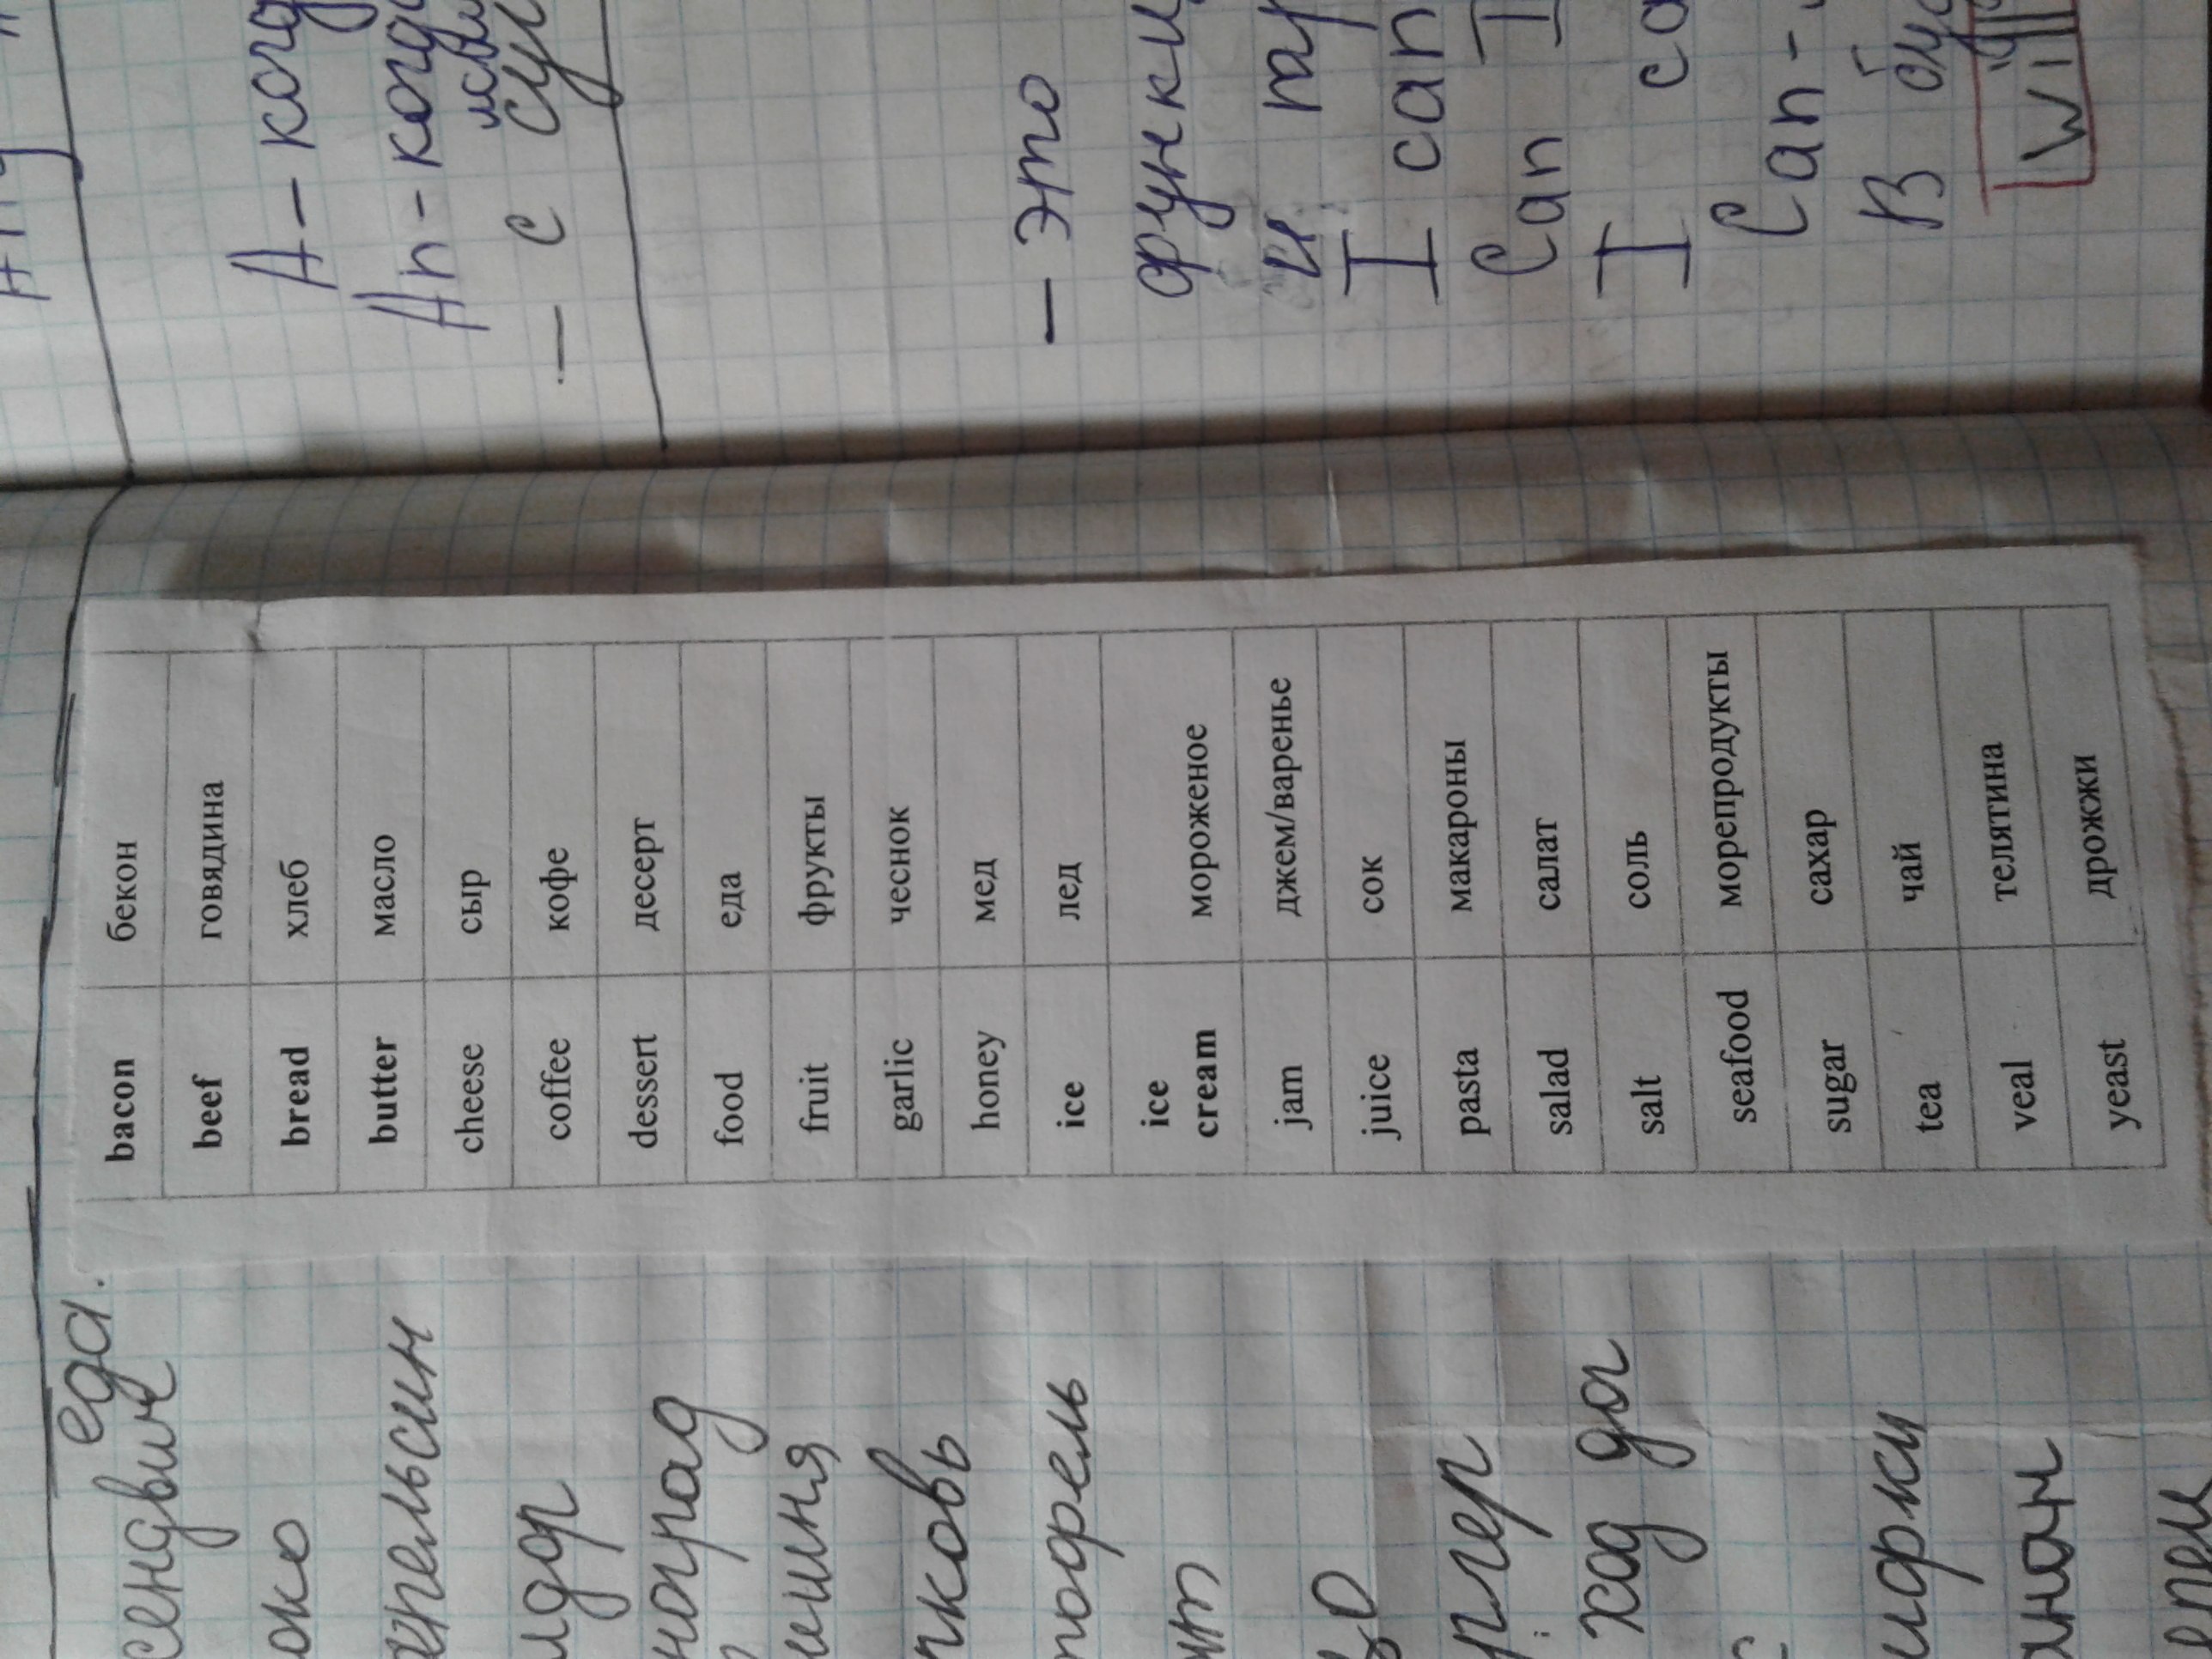 bacon бекон
beef говядина
bread хлеб
butter масло
cheese сыр
coffee кофе
dessert десерт
food еда
fruit фрукты
garlic чеснок
honey мед
ice лед
ice
cream мороженое
jam джем/варенье
juice сок
pasta макароны
salad салат
salt соль
seafood морепродукты
sugar сахар
tea чай
veal телятина
yeast дрожжи
еда.
сендвич
око
апельсин
идор
ноград
ишня
рковь
тофель
ргер
ход дог
A - когд
An - когд
- с сущ
- это
функци
и
I can
Can I
I ca
Can -
В буд